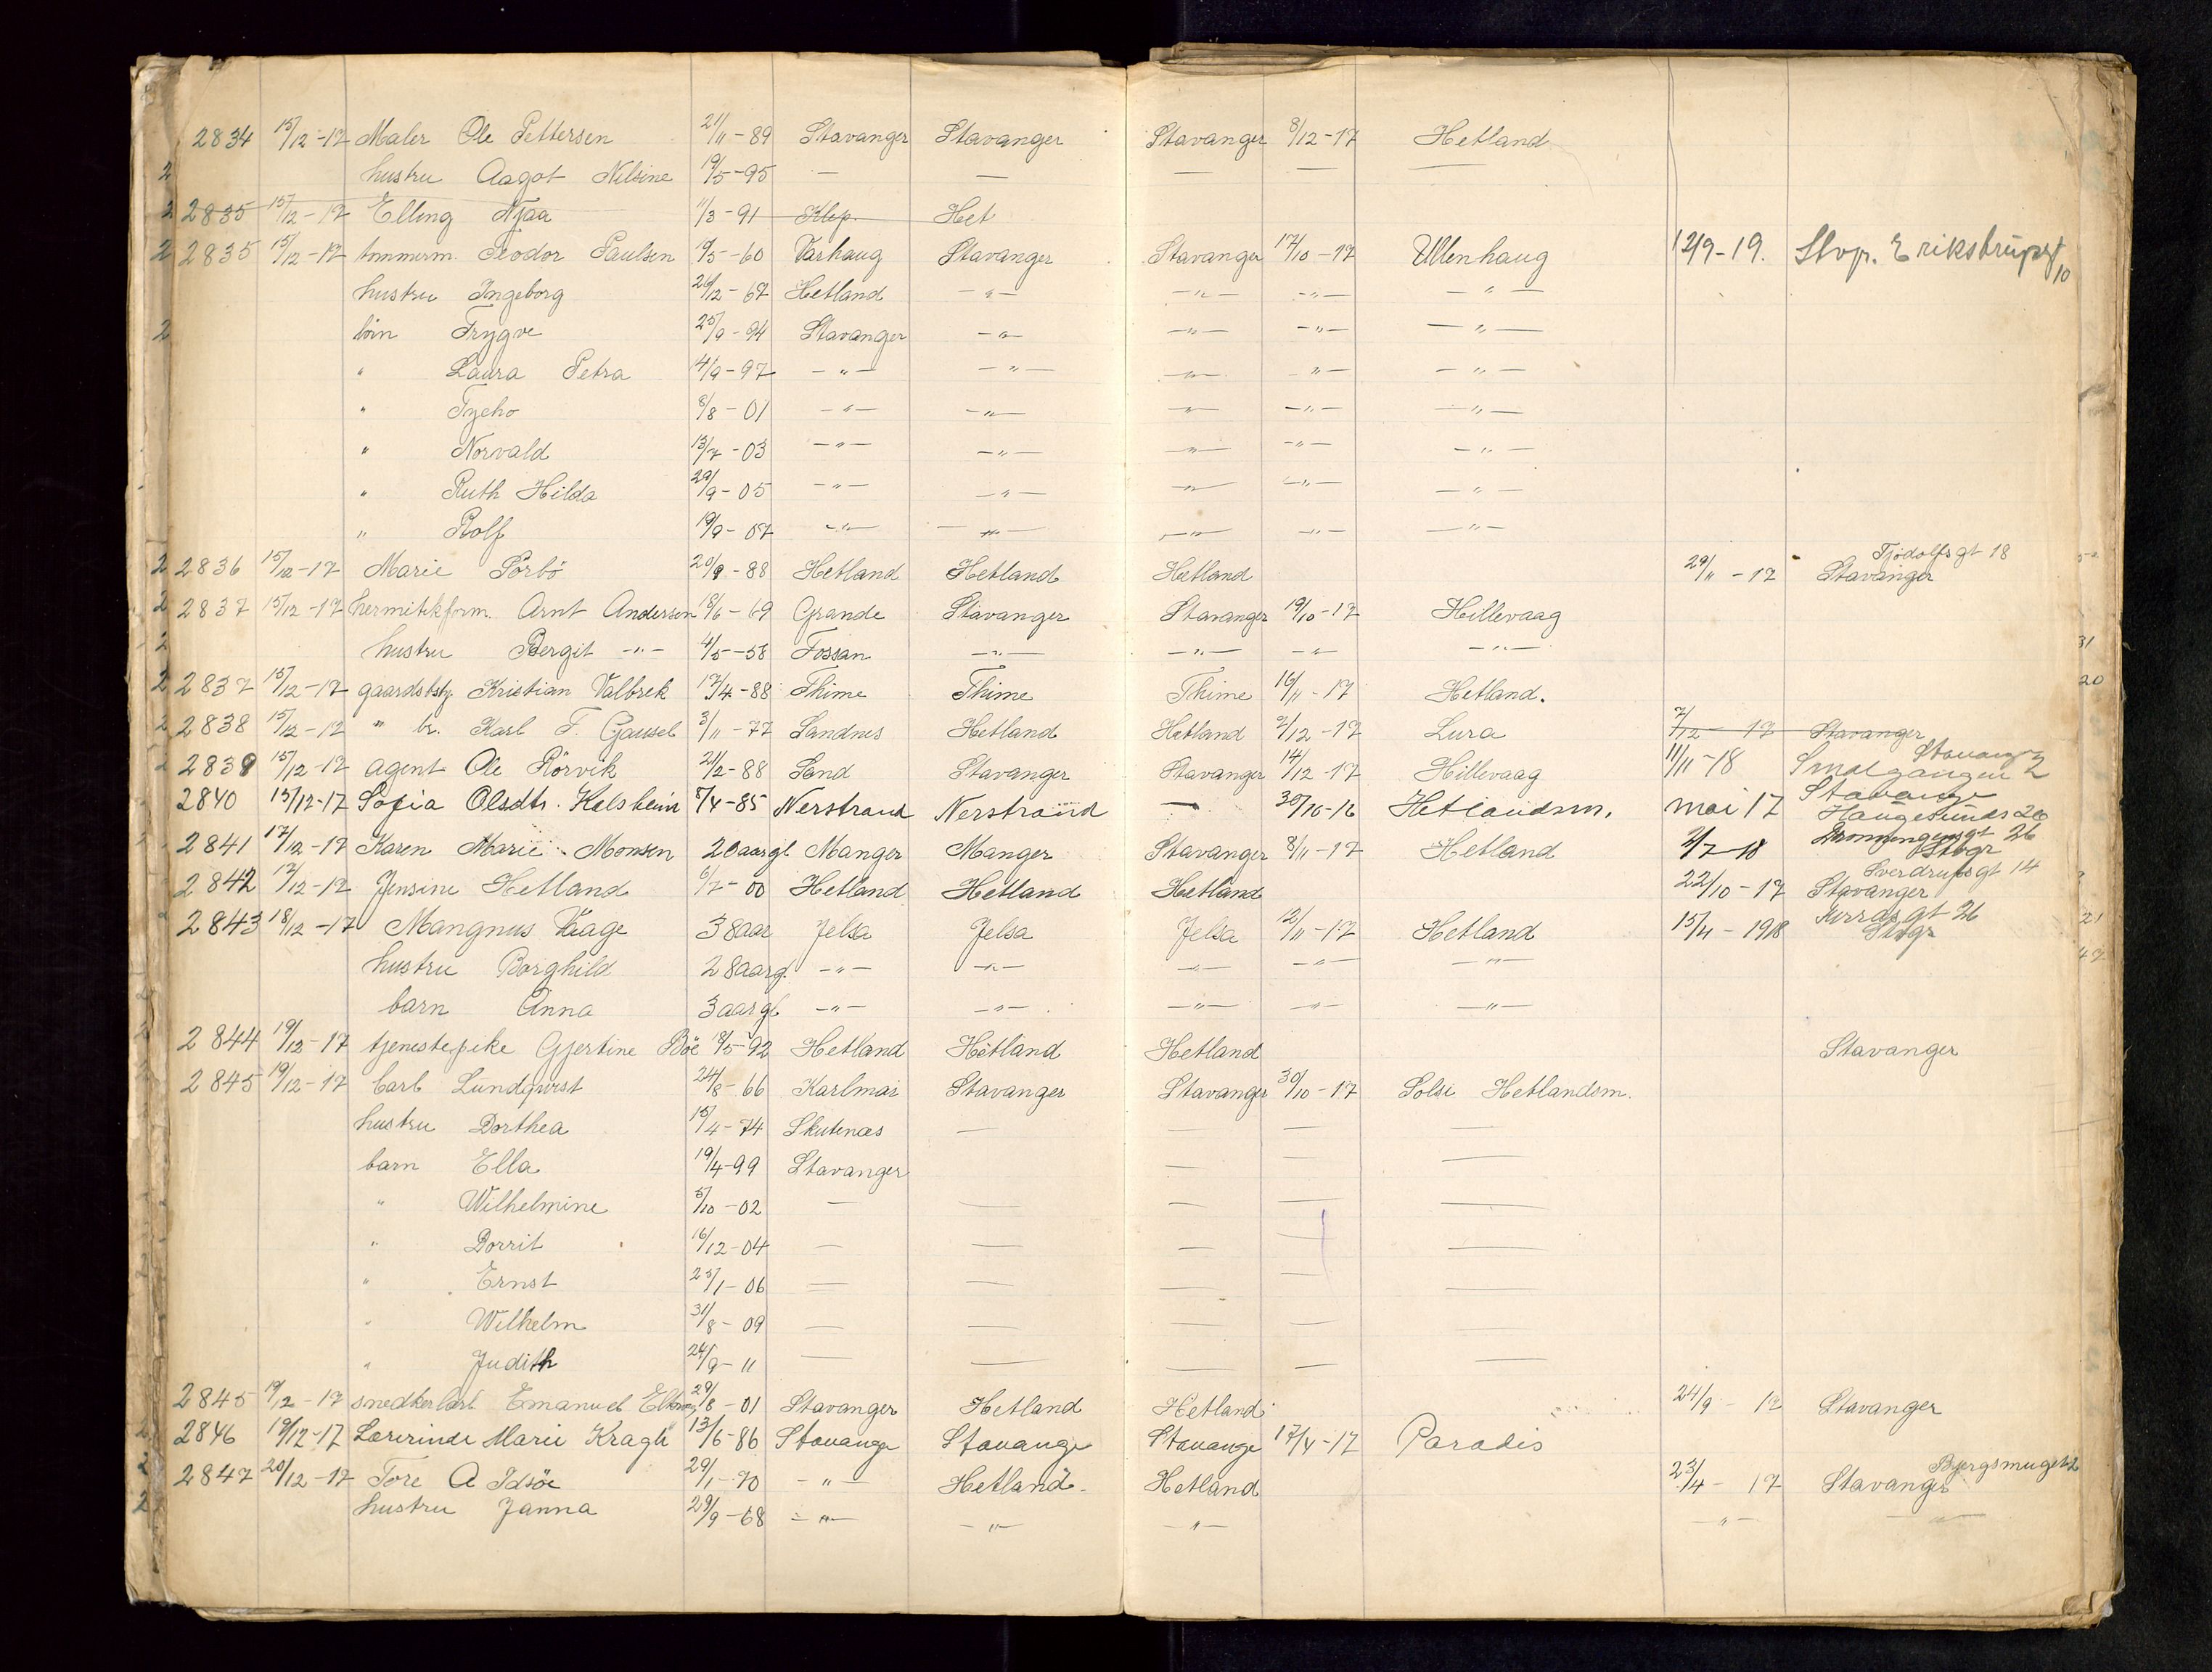 2834 15/12-17 Maler Ole Pettersen 21/11-89 Stavanger Stavanger Stavanger 8/12-17 Hetland
hustru Aagot Nilsine 19/5-95 — — — — —
2835 15/12-17 Elling Njaa 11/3-91 Klep. Het
2835 15/12-17 tømmerm. Teodor Paulsen 19/5-60 Varhaug Stavanger Stavanger 17/10-17 Ullenhaug 12/9-19. Stvp.
hustru Ingeborg 26/12-67 Hetland -"- -"- -"- -"-
børn Trygve 25/9-94 Stavanger -"- -"- -"- -"-
" Laura Petra 4/9-97 -"- -"- -"- -"- -"-
" Tycho 8/8-01 -"- -"- -"- -"- -"-
" Norvald 13/7-03 -"- -"- -"- -"- -"-
" Ruth Hilda 29/9-05 -"- -"- -"- -"- -"-
" Rolf 19/9-07 -"- -"- -"- -"- -"-
2836 15/12-17 Marie Sørbø 20/9-88 Hetland Hetland Hetland 29/11-17 Stavanger Tjodolfsgt 18
2837 15/12-17 hermitikform. Arnt Andersen 18/6-69 Grande Stavanger Stavanger 19/10-17 Hillevaag
hustru Bergit -"- 4/5-58 Fossan -"- -"- -"- -"-
2837 15/12-17 gaardsbst. Kristian Valbrek 17/4-88 Thime Thime Thime 16/11-17 Hetland.
2838 15/12-17 " br. Karl F. Gausel 3/11-77 Sandnes Hetland Hetland 7/12-17 Lura 7/12-17 Stavanger
2839 15/12-17 agent Ole Rørvik 21/2-88 Sand Stavanger Stavanger 14/12-17 Hillevaag 11/11-18 Smalgangen 2 Stavanger
2840 15/12-17 Sofia Olsdtr. Helsheim 8/4-85 Nerstrand Nerstrand — 30/10-16 Hetlandsm. mai 17 Stavanger Haugesundsg 20
2841 17/12-17 Karen Marie Monsen 20aargl Manger Manger Stavanger 8/11-17 Hetland 2/7-18 Dronningensgt 26 Stvgr
2842 17/12-17 Jensine Hetland 6/7-00 Hetland Hetland Hetland 22/10-17 Stavanger Sverdrupsgt 14
2843 18/12-17 Mangnus Vaage 38aar Jelsa Jelsa Jelsa 12/11-17 Hetland 15/4-1918 26 Stvgr
hustru Borghild 28aarg. -"- -"- -"- -"- -"-
barn Anna 3aargl -"- -"- -"- -"- -"-
2844 19/12-17 tjenestepike Gjertine Bøe 18/5-92 Hetland Hetland Hetland Stavanger
2845 19/12-17 Carl Lundqurst 24/8-66 Karlmar Stavanger Stavanger 30/10-17 Solsi Hetlandsm.
hustru Dorthea 15/4-74 Skutenæs — — — —
barn Ella 19/4-99 Stavanger — — —
" Wilhelmine 5/10-02 — — — — —
" Dorrit 16/12-04 — — — — —
" Ernst 25/1-06 — — — — —
" Wilhelm 31/8-09 — — — — —
" Judith 24/9-11 — — — — —
2845 19/12-17 snedkerlærl Emanuel 29/8-01 Stavanger Hetland Hetland 24/9-17 Stavanger
2846 19/12-17 Lærerinde Marie Kragh 13/6-86 Stavanger Stavanger Stavanger 17/4-17 Paradis
2847 20/12-17 Tore A Idsöe 29/1-70 -"- Hetland. Hetland 23/4-17 Stavanger
hustru Janna 29/9-68 -"- -"- -"- -"- -"-